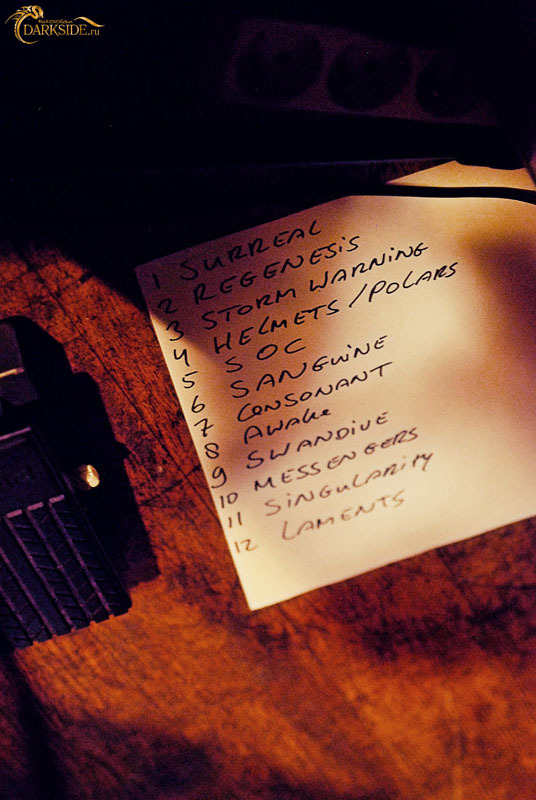 DARKSIDE.ru
1 SURREAL
2 REGENESIS
3 STORM WARNING
4 HELMETS / POLARS
5 SOC
6 SANGUINE
7 CONSONANT
8 AWAKE
9 SWANDIVE
10 MESSENGERS
11 SINGULARITY
12 LAMENTS